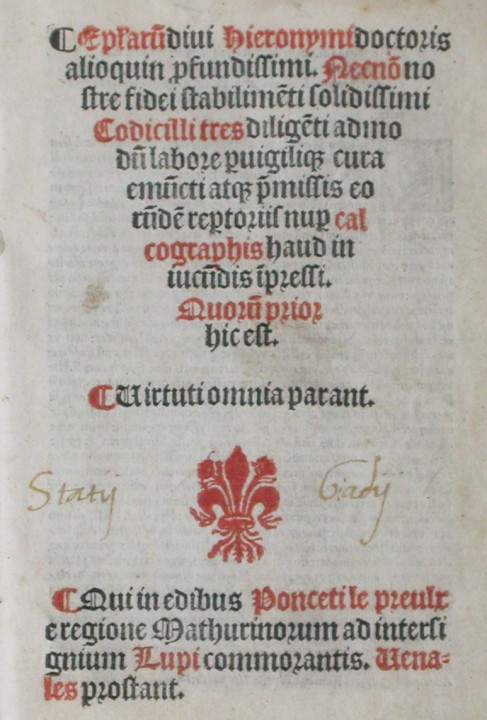 Ep̄karū divi Hieronymi doctoris
alioquin ꝓfundissimi. Necnō no
stre fidei stabilimēti solidissimi
Codicilli tres diligēti admo
dū labore ꝑvigiliqꝫ cura
emūcti atqꝫ p̄missis eo
rūdē reꝑtoriis nuꝑ cal
cographis haud in
iucūdis īpressi.
Quorū prior
hic est.
Uirtuti omnia parant.
Statij Gadij
Qui in edibus Ponceti le preulx
e regione Mathurinorum ad intersi
gnium Lupi commorantis. Uena-
les prostant.